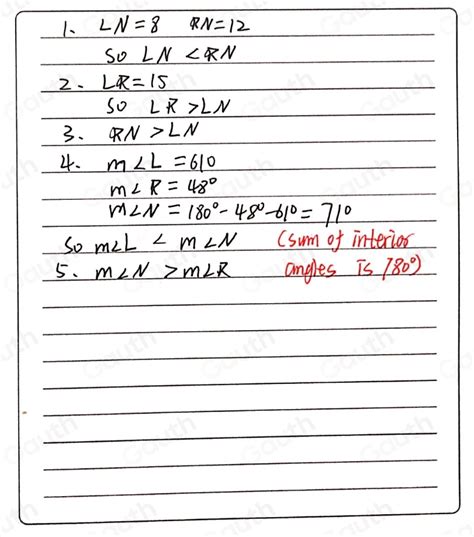 1. LN=8 RN=12
So LN <RN
2. LR=15
So LR >LN
3. RN >LN
4. m∠L =61°
m∠R = 48°
m∠N = 180°-48°-61°= 71°
So m∠L < m∠N (sum of interior
5. m∠N > m∠R angles is 180°)
Gauth